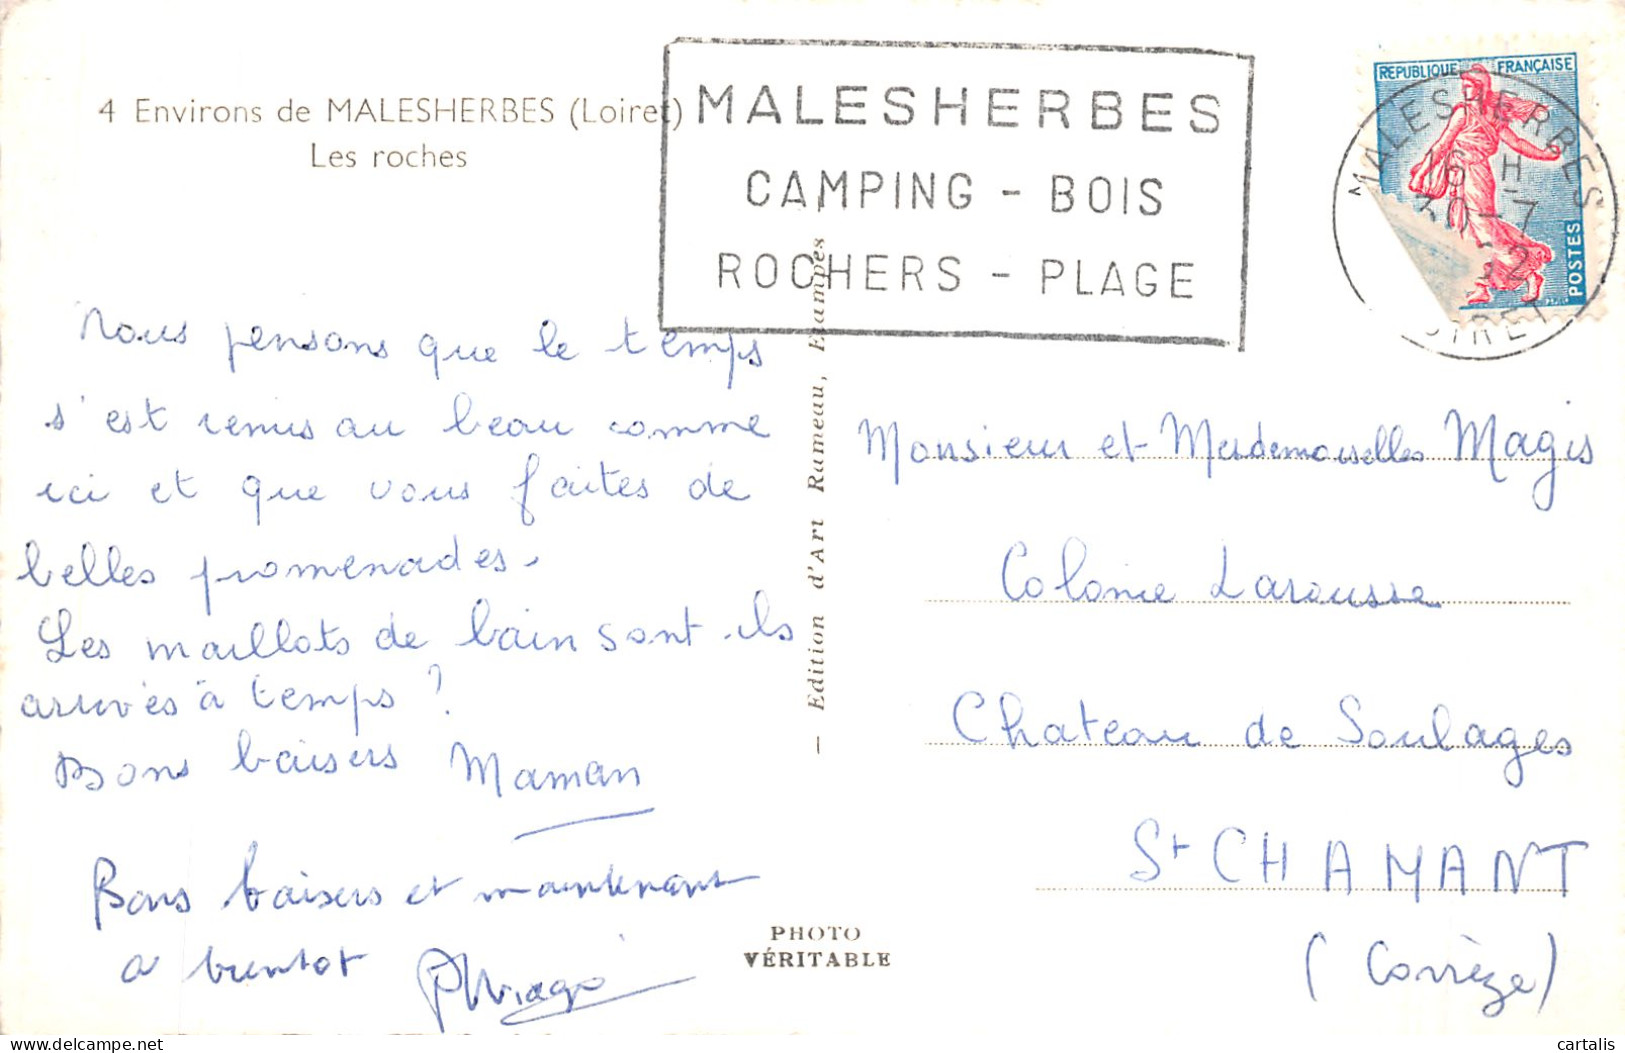 4 Environs de MALESHERBES (Loiret)
Les roches
MALESHERBES
CAMPING - BOIS
ROCHERS - PLAGE
REPUBLIQUE FRANÇAISE
POSTES
MALESHERBES
16 H
30-7
LOIRET
Nous pensons que le temps
s'est remis au beau comme
ici et que vous faites de
belles promenades.
Les maillots de bain sont-ils
arrivés à temps ?
Bons baisers Maman
Bons baisers et maintenant
a bientot
- Edition d'Art Rameau, Etampes
PHOTO
VÉRITABLE
Monsieur et Mesdemoiselles Magis
Colonie Larousse
Chateau de Soulages
St CHAMANT
(Corrèze)
cartalis